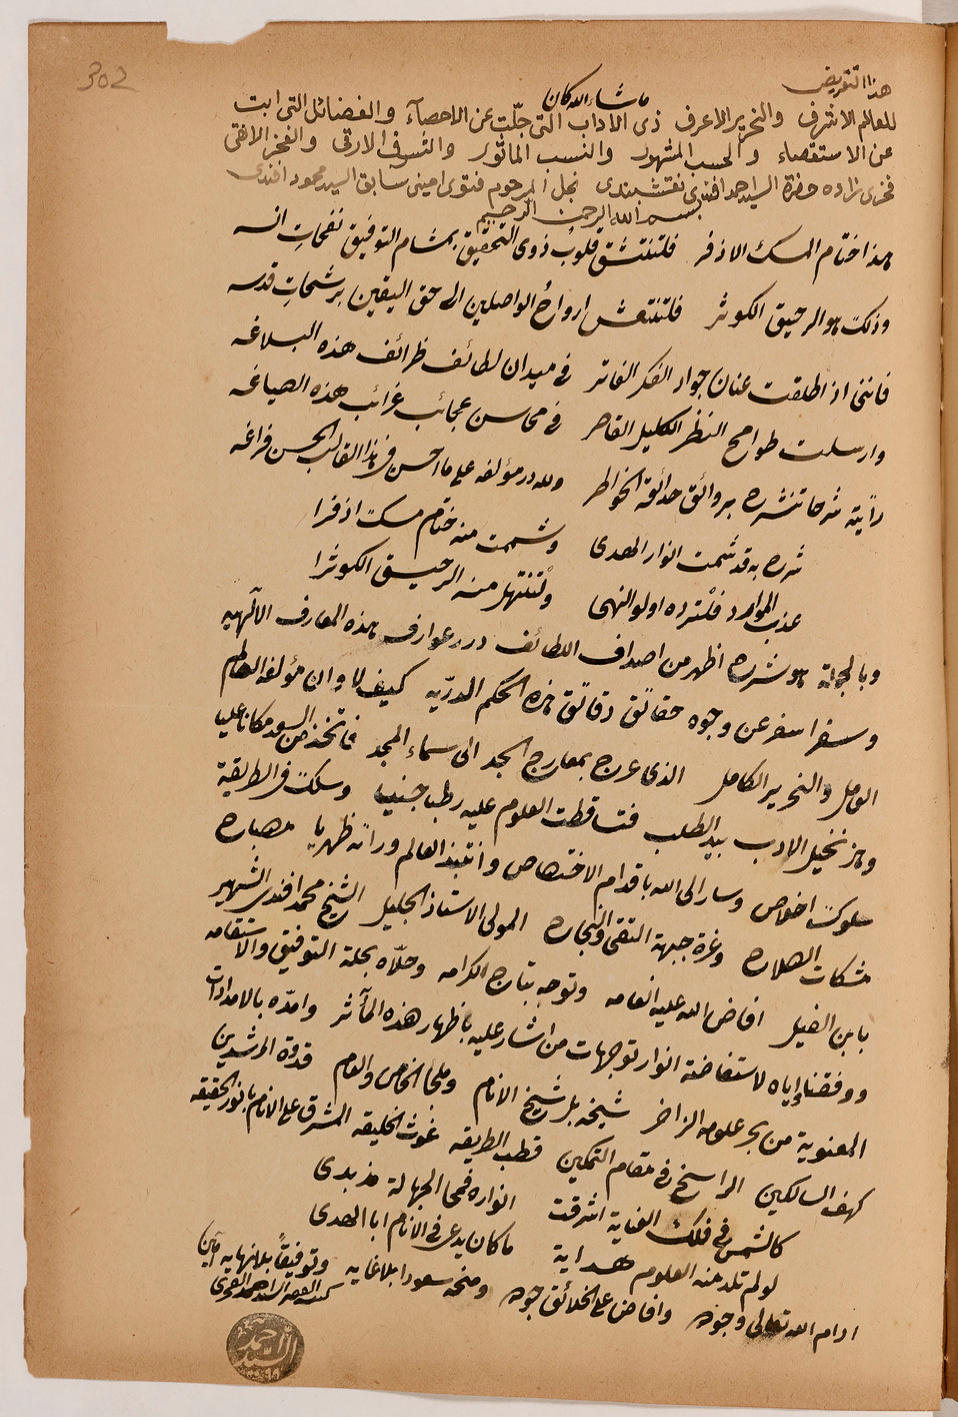 302
هذا التقريض
ما شاء الله كان
للعالم الاشرف والنحرير الاعرف ذى الاداب التى جلّت عن الاحصاء والفضائل التى ابت
عن الاستقصاء والحسب المشهور والنسب الماثور والشرف الارقى والفخر الانقى
فخرى زاده حضرة السيد احمد افندى نقشبندى نجل المرحوم فتوى امينى سابق السيد محمود افندى
بسم الله الرحمن الرحيم
هذا ختام المسك الاذفر فلتنتشق قلوب ذوى التحقيق بمشام التوفيق نفحات انسه
وذلك هو الرحيق الكوثر فلتنتعش ارواح الواصلين الى حق اليقين برشحات قدسه
فاننى اذ اطلقت عنان جواد الفكر الفاتر فى ميدان لطائف ظرائف هذه البلاغه
وارسلت طوامح النظر الكليل القاصر فى محاسن عجائب غرائب هذه الصياغه
رأيته شرحا تنشرح بروائق حدائقه الخواطر ولله در مؤلفه على ما احسن فى هذا القالب الحسن فراغه
شرح به قد شمت انوار الهدى وشممت منه ختام مسك اذفرا
عذب الموارد فلترده اولو النهى ولتنتهل منه الرحيق الكوثرا
وبالجملة هو شرح اظهر من اصداف اللطائف درر عوارف هذه المعارف الآلهيه
وسفر اسفر عن وجوه حقائق دقائق هذه الحكم الدريه كيف لا وان مؤلفه العالم
العامل والنحرير الكامل الذى عرج بمعارج الجد الى سماء المجد فاتخذ من السعد مكانا عليا
وهز نخيل الادب بيد الطلب فتساقطت العلوم عليه رطبا جنيا وسلك فى الطريقة
سلوك اخلاص وسار الى الله باقدام الاختصاص وانتبذ العالم ورائه ظهريا مصباح
مشكات الصلاح وغرة جبهة التقى والنجاح المولى الاستاذ الجليل الشيخ محمد افندى الشهير
بابن الفيل افاض الله عليه انعامه وتوجه بتاج الكرامه وحلّاه بحلة التوفيق والاستقامه
ووفقنا واياه لاستفاضة انوار توجهات من اشار عليه باظهار هذه المآثر وامدّه بالامدادات
المعنوية من بحر علومه الزاخر شيخه بل شيخ الانام وملجا الخاص والعام قدوة المرشدين
كهف السالكين الراسخ فى مقام التمكين قطب الطريقه غوث الخليقه المشرق على الانام بانور الحقيقه
كالشمس فى فلك العناية اشرقت انواره فمحى الجهالة مذ بدى
لو لم تلد منه العلوم هداية ما كان يدعى فى الانام ابا الهدى
ادام الله تعالى وجوده وافاض على الخلائق جوده ومنحه سعودا بلا غايه وتوفيقا بلا نهايه آمين
كتبه الفقير السيد احمد الفخرى
السيد احمد